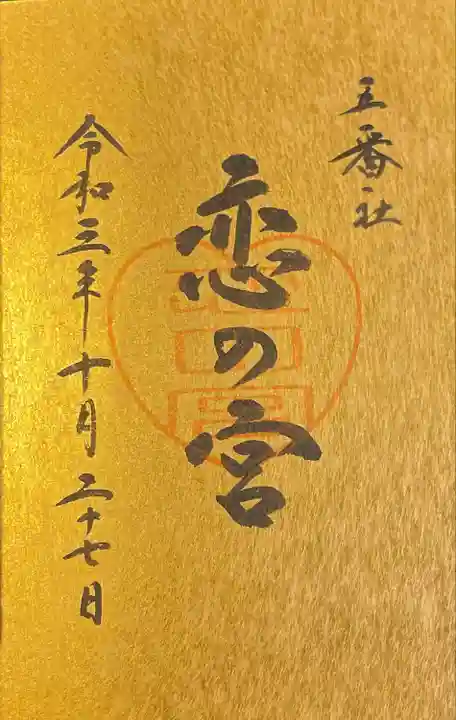 五番社
恋の宮
令和三年十月二十七日